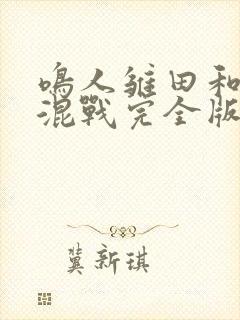 鳴人雛田和
混戰完全版
冀新琪